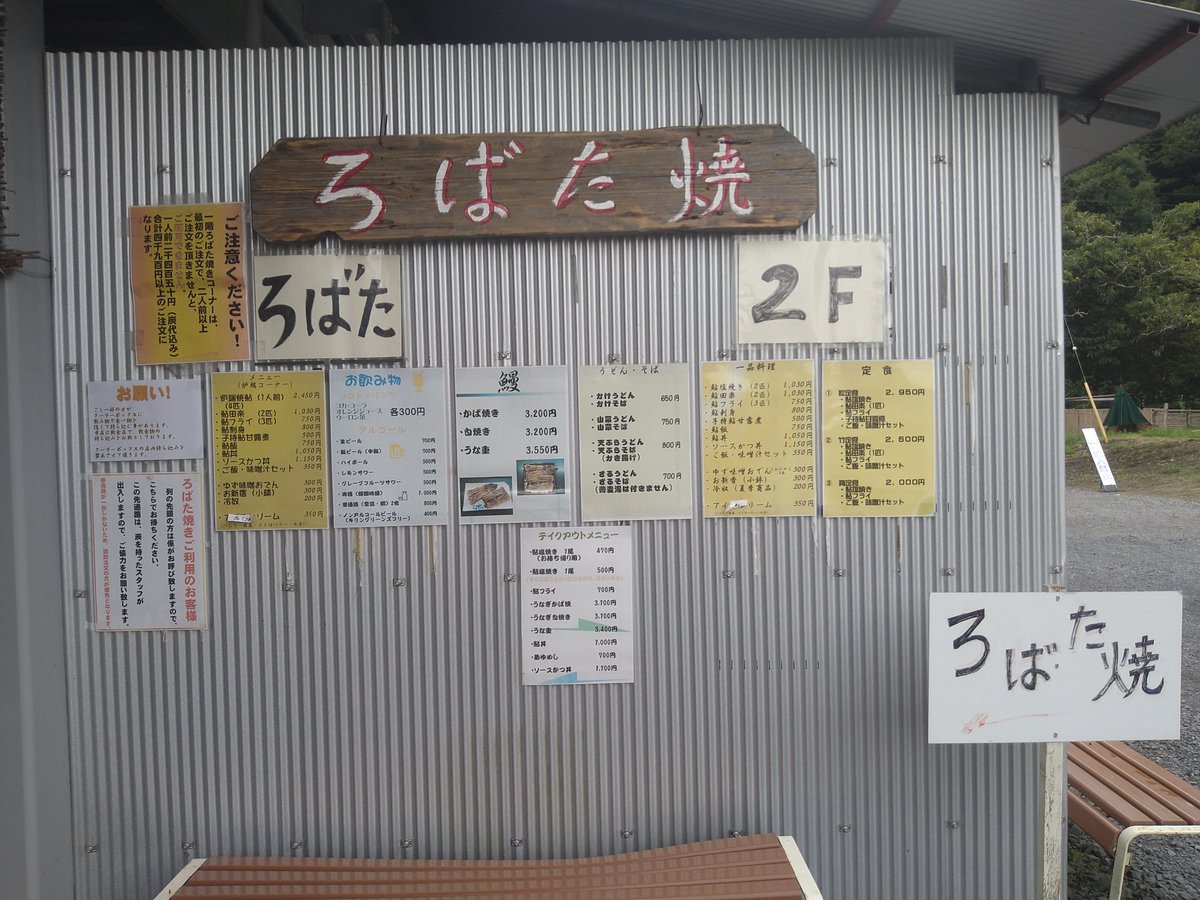 ろばた焼
ご注意ください!
一階ろばた焼きコーナーは、
最初のご注文で、二人前以上
ご注文を頂きませんと、
ご利用できません。
一人前二千四百五十円(炭代込み)
合計四千九百円以上のご注文に
なります。
ろばた
2F
お願い!
ろばた焼きご利用のお客様
列の先頭の方は係がお呼び致しますので、
こちらでお待ちください。
この先通路は、炭を持ったスタッフが
出入りしますので、ご協力をお願い致します。
メニュー
(炉端コーナー)
・炉端焼鮎(1人前) 2,450円
(4匹)
・鮎田楽 (2匹) 1,030円
・鮎フライ (3匹) 750円
・鮎刺身 800円
・子持鮎甘露煮 500円
・鮎飯 750円
・鮎丼 1,050円
・ソースかつ丼 1,150円
・ご飯・味噌汁セット 350円
・ゆず味噌おでん 300円
・お新香(小鉢) 300円
・冷奴 200円
350円
お飲み物
ソフトドリンク
コカ・コーラ
オレンジジュース
ウーロン茶
各300円
アルコール
・生ビール 700円
・瓶ビール(中瓶) 700円
・ハイボール 500円
・レモンサワー 500円
・グレープフルーツサワー 500円
1,000円
600円
・ノンアルコールビール 400円
(キリングリーンズフリー)
鰻
・かば焼き 3,200円
・白焼き 3,200円
・うな重 3,550円
うどん・そば
・かけうどん
かけそば
650円
・山菜うどん
山菜そば
750円
・天ぷらうどん
天ぷらそば
(かき揚げ)
800円
・ざるうどん
ざるそば
(蕎麦湯は付きません)
700円
一品料理
・鮎塩焼き(2匹) 1,030円
・鮎田楽 (2匹) 1,030円
・鮎フライ(3匹) 750円
・鮎刺身 800円
・子持鮎甘露煮 500円
・鮎飯 750円
・鮎丼 1,050円
・ソースかつ丼 1,150円
・ご飯・味噌汁セット 350円
・ゆず味噌おでん 300円
・お新香(小鉢) 300円
・冷奴(夏季商品) 200円
350円
定食
① 2,950円
・鮎塩焼き
・鮎田楽(1匹)
・鮎フライ
・ご飯・味噌汁セット
② 竹定食 2,500円
・鮎塩焼き
・鮎田楽(1匹)
・ご飯・味噌汁セット
③ 梅定食 2,000円
・鮎塩焼き
・鮎フライ
・ご飯・味噌汁セット
テイクアウトメニュー
・鮎塩焼き 1尾 470円
(お持ち帰り用)
・鮎塩焼き 1尾 500円
・鮎フライ 700円
・うなぎかば焼 3,700円
・うなぎ白焼き 3,700円
・うな重 3,400円
・鮎丼 1,000円
・あゆめし 700円
・ソースかつ丼 1,100円
ろばた焼